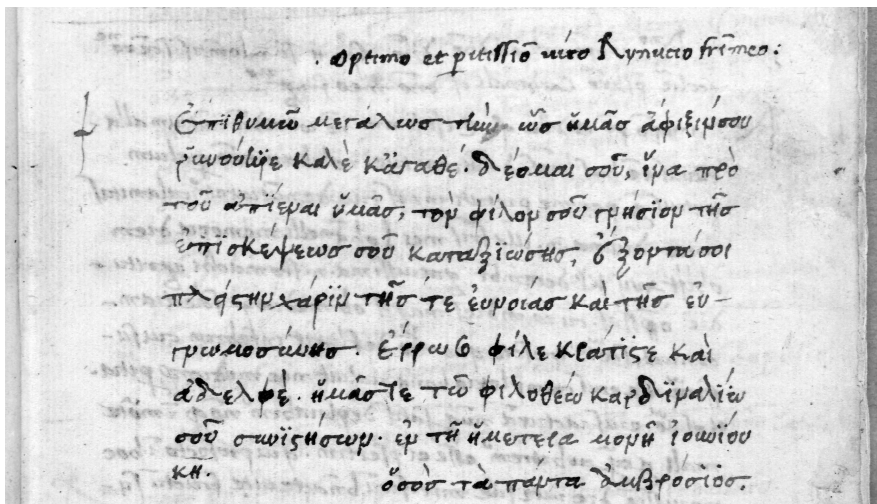 . Optimo et p̱itissiō viro Rynucio frīmeo:
Ἐπϊθυμῶ μεγάλωσ τὴν ὡσ ἡμᾶσ ἄφιξιμσου
ῥινούκϊε καλὲ κἀγαθέ. δέομαι σοῦ, ἵνα πρὸ
τοῦ ἀπϊέμαι ὑμᾶσ, τὸν φίλον σοῦ γνήσϊον τῆσ
ἐπισκέψεωσ σοῦ καταξϊώσησ, ἕξοντά σοι
πλείστην χάρϊν τῆσ τε ἐυνοιάσ καὶ τῆσ εὐ-
γνωμοσύνησ. ἐρρωσο φίλε κράτιστε καὶ
ἀδελφέ. ἡμᾶσ τε τῶ φϊλοθέω καρδϊναλίω
σοῦ συνίστησον. ἐν τῆ ἡμετερα μονῆ ἰουνίου
κη. ὅσὸσ τὰ πάντα ἀμβρόσϊοσ.